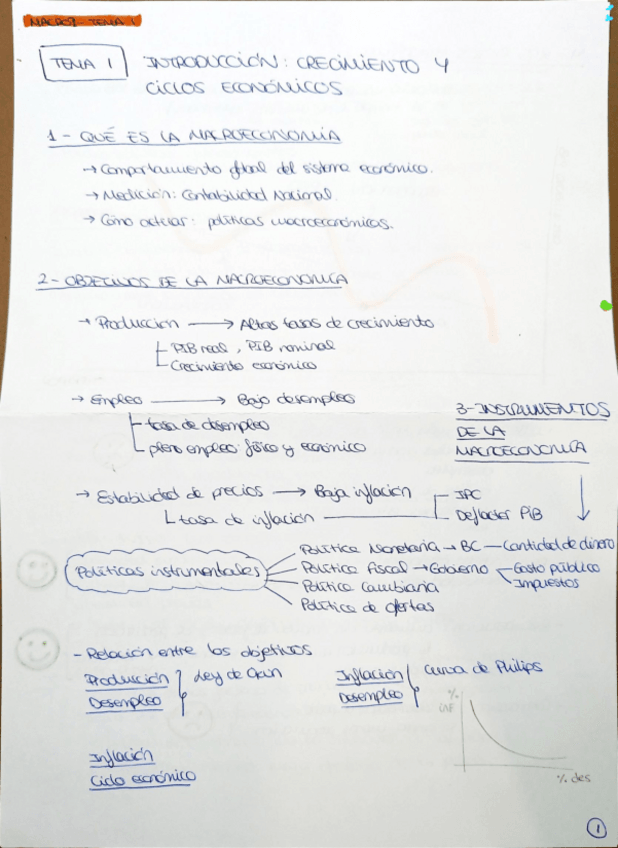 MACRO - TEMA 1
TEMA 1 INTRODUCCIÓN: CRECIMIENTO Y
CICLOS ECONÓMICOS
1 - QUÉ ES LA MACROECONOMÍA
→ Comportamiento global del sistema económico.
→ Medición: Contabilidad Nacional.
→ Cómo actuar: políticas macroeconómicas.
2 - OBJETIVOS DE LA MACROECONOMÍA
→ Producción → Altas tasas de crecimiento
PIB real, PIB nominal
Crecimiento económico
→ Empleo → Bajo desempleo
tasa de desempleo
pleno empleo: físico y económico
3 - INSTRUMENTOS
DE LA
MACROECONOMÍA
→ Estabilidad de precios → Baja inflación
tasa de inflación
IPC
Deflactor PIB
Políticas instrumentales
Política Monetaria → BC — Cantidad de dinero
Política Fiscal → Gobierno
Gasto público
Impuestos
Política Cambiaria
Política de ofertas
- Relación entre los objetivos
Producción
Desempleo
Ley de Okun
Inflación
Desempleo
Curva de Philips
%
INF
% des
Inflación
Ciclo económico
1